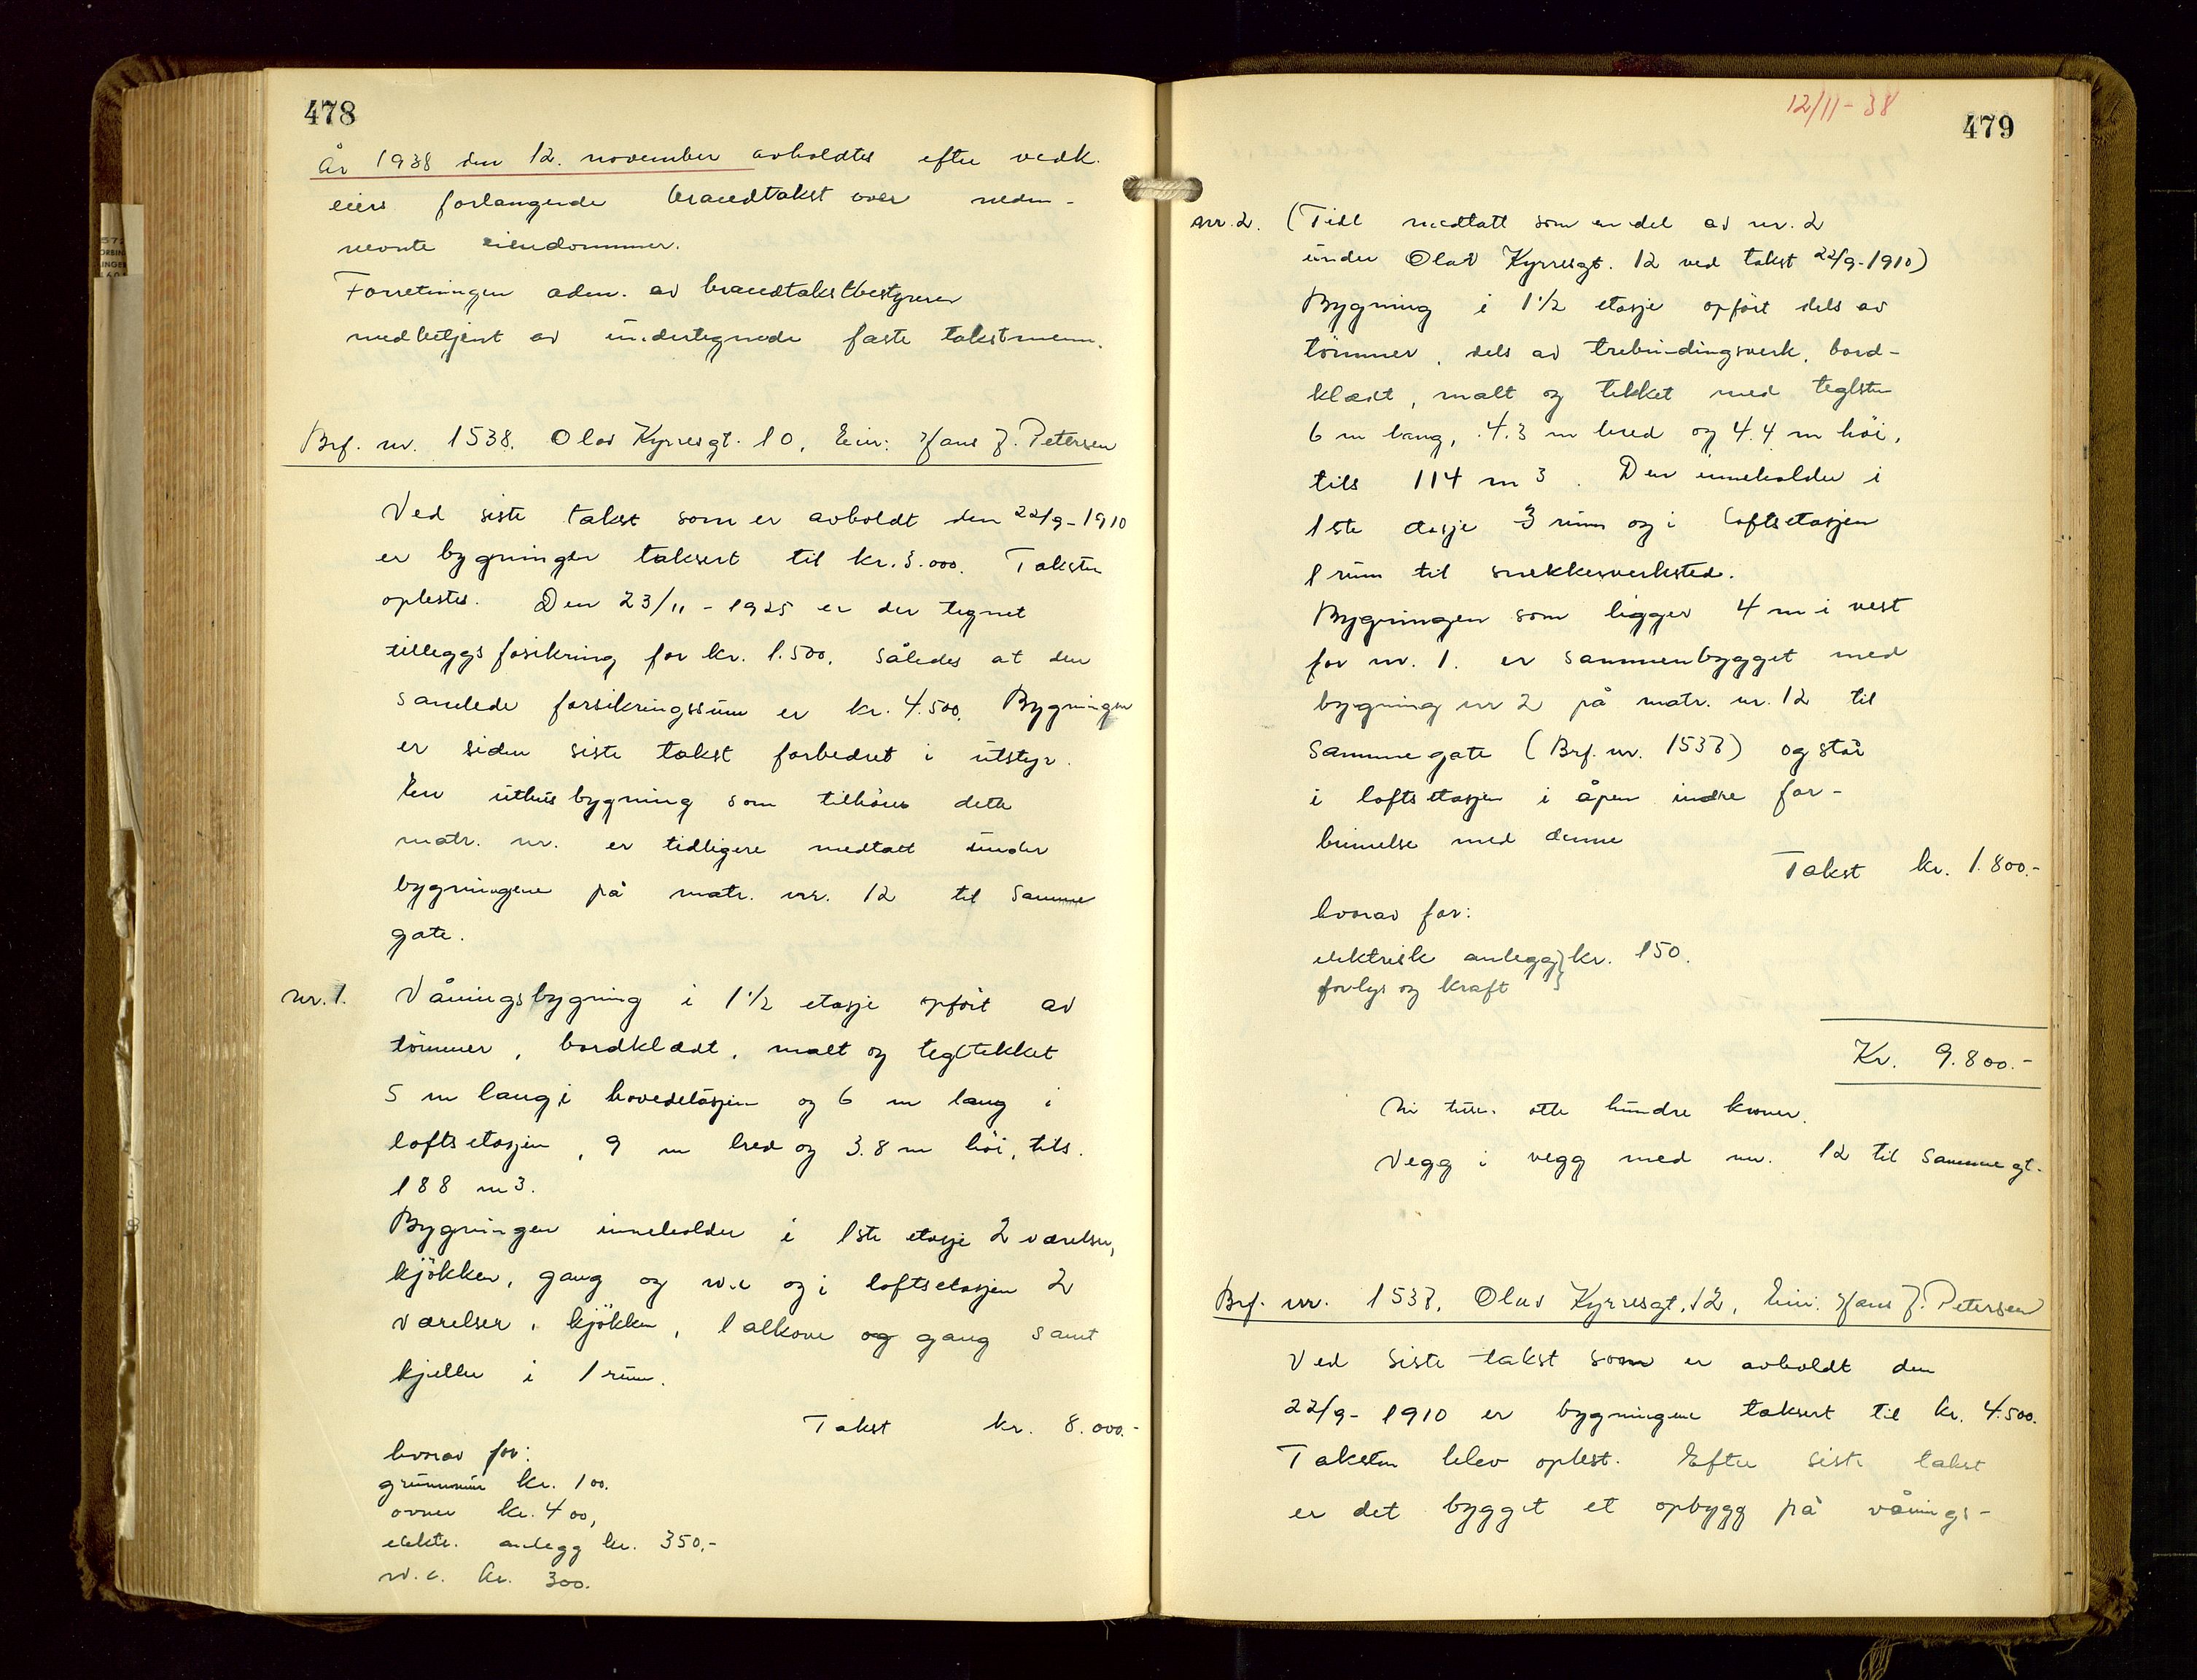 478
År 1938 den 12. november avholdtes efter vedk.
eiers forlangende brandtakst over neden-
nevnte eiendommer.
Forretningen adm. av brandtakstbestyreren
medbetjent av undertegnede faste takstmenn.
Brf. nr. 1538. Olav Kyrresgt. 10, Eier: Hans J. Petersen
Ved siste takst som er avholdt den 22/9-1910
er bygningen taksert til kr. 3.000. Taksten
oplestes. Den 23/11-1925 er der tegnet
tilleggsforsikring for kr. 1.500, således at den
samlede forsikringssum er kr. 4.500. Bygningen
er siden siste takst forbedret i utstyr.
En uthusbygning som tilhører dette
matr. nr. er tidligere medtatt under
bygningene på matr. nr. 12 til samme
gate.
nr. 1. Våningsbygning i 1 1/2 etasje opført av
tömmer, bordklædt, malt og tegltekket
5 m lang i hovedetasjen og 6 m lang i
loftsetasjen, 9 m bred og 3.8 m höi, tils.
188 m3.
Bygningen inneholder i 1ste etasje 2 værelser,
kjökken, gang og w.c og i loftsetasjen 2
værelser, kjökken, 1 alkove og gang samt
kjeller i 1 rum.
Takst kr. 8.000.-
hvorav for:
grunnmur kr. 100.
ovner kr. 400,
elektr. anlegg kr. 350,-
w.c. kr. 300.
12/11-38
479
nr. 2. (Tidl medtatt som en del av nr. 2
under Olav Kyrresgt. 12 ved takst 22/9-1910)
Bygning i 1 1/2 etasje opfört dels av
tömmer, dels av trebindingsverk, bord-
klædt, malt og tekket med teglsten
6 m lang, 4.3 m bred og 4.4 m höi,
tils 114 m3. Den inneholder i
1ste etasje 3 rum og i loftsetasjen
1 rum til snekkerverksted.
Bygningen som ligger 4 m i vest
for nr. 1. er sammenbygget med
bygning nr 2 på matr. nr. 12 til
samme gate (Brf. nr. 1537) og står
i loftsetasjen i åpen indre for-
binnelse med denne
Takst kr. 1.800.-
hvorav for:
elektrisk anlegg} kr. 150.
for lys og kraft}
Kr. 9.800.-
Ni tus. otte hundre kroner.
Vegg i vegg med nr. 12 til samme gt.
Brf. nr. 1537. Olav Kyrresgt. 12, Eier: Hans J. Petersen
Ved siste takst som er avholdt den
22/9-1910 er bygningene taksert til kr. 4.500.
Taksten blev oplest. Efter siste takst
er det bygget et opbygg på vånings-